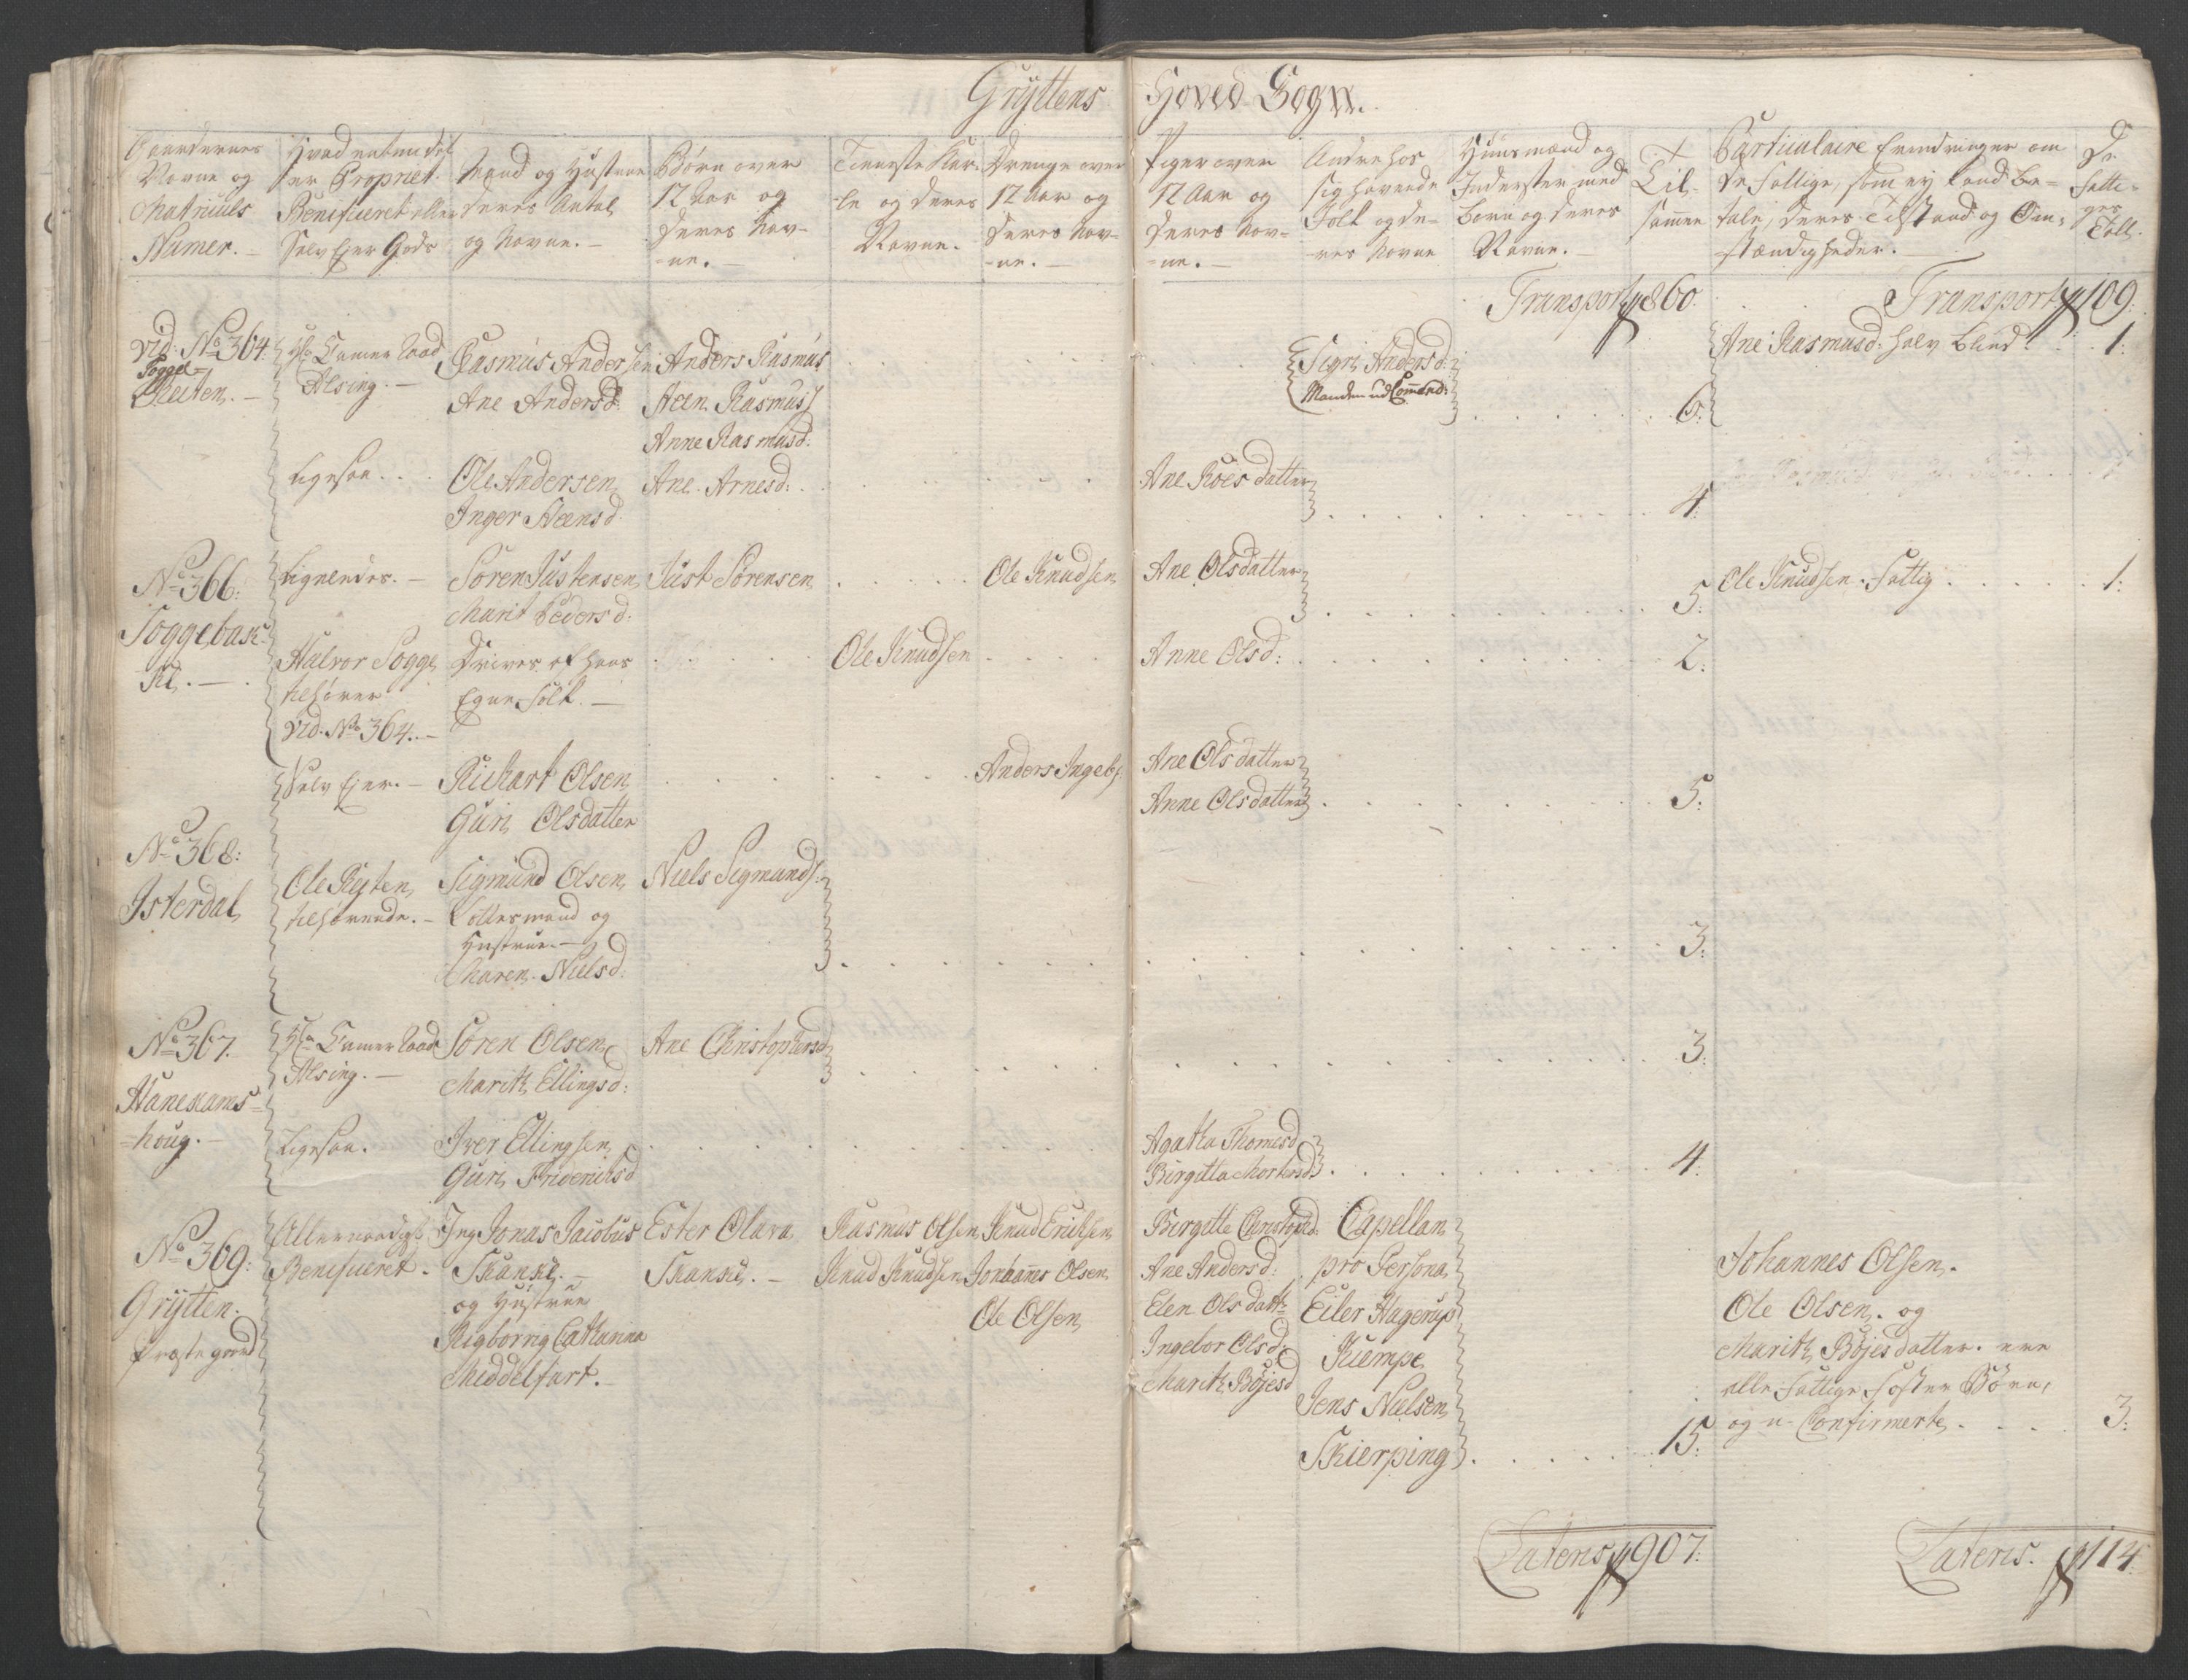 Gryttens Hoved Sogn.
Gaardernes Navne og Matriculs Numer.
Hvad enten det er Propriet. Benificeret eller Selv Ejer Gods
Mand og Hustrue deres Antal og Navne.
Børn over 12 Aar og deres Navne.
Tieneste Karle og deres Navne.
Drenge over 12 Aar og deres Navne.
Piger over 12 Aar og deres Navne.
Andre hos sig havende Folk og deres Navne
Huusmænd og Inderster med Børn og deres Navne.
Tilsammen
Particulaire Erindringer om de Fattige, som ej kand betale, deres Tilstand og Omstændigheder.
De Fattiges Tall.
Transport 860.
Transport 109:
Vid: No 364.
Sogge-
Reiten.
Hr. Camer Raad
Alsing.
Rasmus Andersen
Ane Andersd:
Anders Rasmus
Steen Rasmuss
Anne Rasmusd:
Sigri Andersd:
Manden ud Com̄end:
6:
Ane Rasmusd: halv blind. 1:
Ligesaa
Ole Andersen
Inger Steensd.
Ane Arnesd:
Ane Roes datter
4:
No 366:
Soggebak-
ke.
Lignendes.
Søren Justensen
Marit Pedersd:
Just Sørensen
Ole Knudsen
Ane Olsdatter
5:
Ole Knudsen. Fattig 1:
Halvor Sogge
tilhører
Vid. No 364.
Drives af hans
Egne Folk.
Ole Knudsen
Anne Olsd:
2:
Selv Ejer.
Richart Olsen
Guri Olsdatter
Anders Ingebs:
Ane Olsdatter
Anne Olsdatter
5:
No 368:
Isterdal
Ole Reiten
tilhørende.
Sigmund Olsen
og
Hustrue.
Maren Nielsd:
Niels Sigmunds:
3:
No 367.
Hanekams-
houg.
Hr. Camer Raad
Alsing.
Søren Olsen
Marith Ellingsd:
Ane Christophersd
3:
Ligesaa.
Iver Ellingsen
Guri Friderichsd
Agatha Thomesd
Birgitta Mortensd
4:
No 369:
Grytten.
Præste gaard
Allernaadigst
Benificeret.
Jonas Jacobus
Skanke.
og Hustrue
Rigborrig Catharina
Middelfart.
Ester Olava
Skanke.
Rasmus Olsen
Knud Knudsen
Knud Erichsen
Johannes Olsen
Ole Olsen
Birgitte Christopd:
Ane Andersd:
Elen Olsdatt:
Ingebor Olsd:
Marith Bøjesd
Capellan
pro Persona
Eiler Hagerup
Kiempe
Jens Nielsen
Skierping
15:
Johannes Olsen.
Ole Olsen. og
Marith Bøjesdatter. ere
alle Fattige Foster Børn,
og u-Confirmerte 3:
Lateris 907:
Lateris. 114: